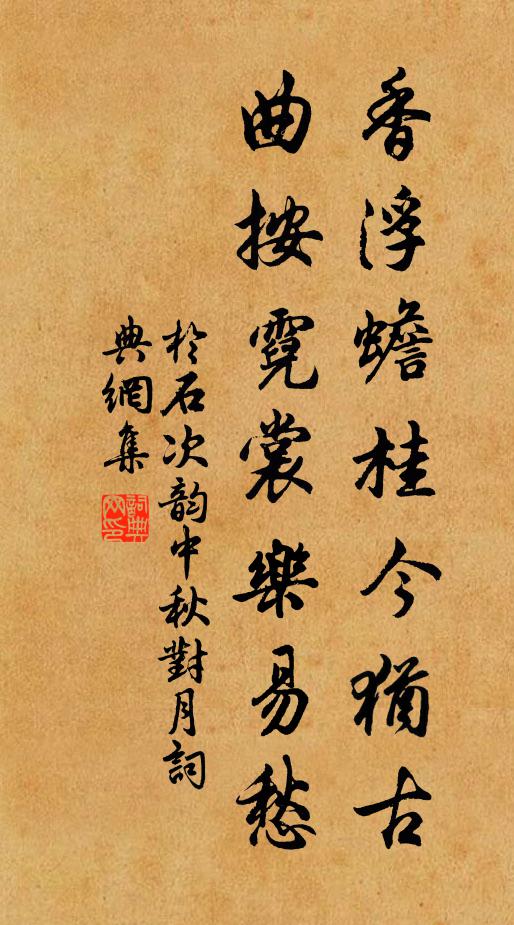 香浮蟾桂今猶古
曲按霓裳樂易愁
於石次韵中秋對月詞
典網集
詞典網印